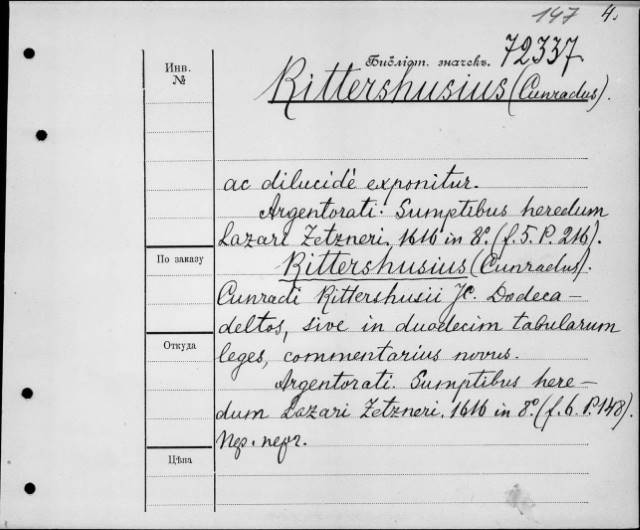 147 4.
Библіот. значекъ. 72337.
Инв.
№
Rittershusius (Cunradus).
ac dilucidè exponitur.
Argentorati. Sumptibus heredum
Lazari Zetzneri. 1616 in 8º. (f. 5. P. 216).
По заказу
Rittershusius (Cunradus).
Cunradi Rittershusii Jc. Dodeca-
deltos, sive in duodecim tabularum
Откуда
leges, commentarius novus.
Argentorati. Sumptibus here-
dum Lazari Zetzneri. 1616 in 8º. (f. 6. P. 148).
Пер.
Цѣна